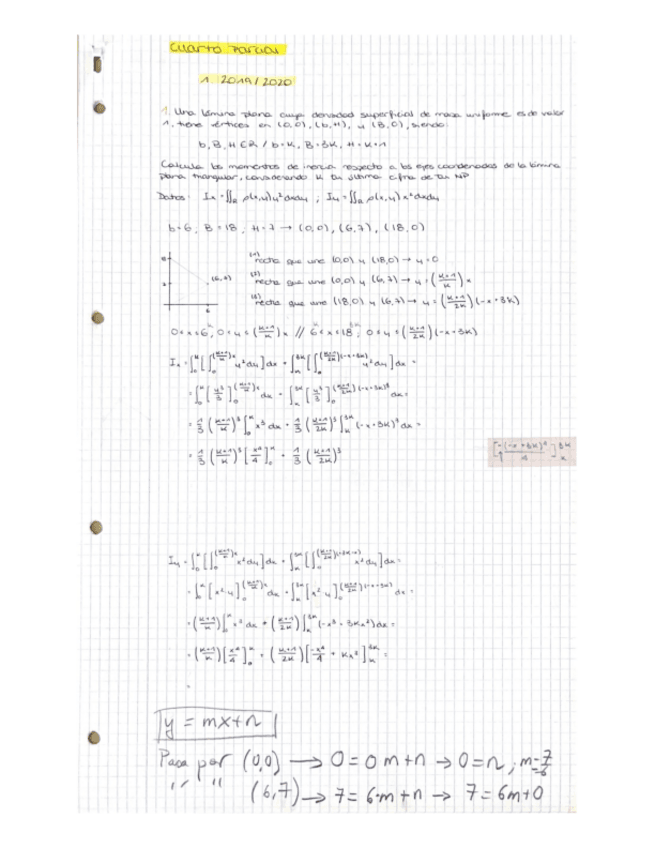 Cuarto Parcial
1. 2019/2020
1. Una lámina plana cuya densidad superficial de masa uniforme es de valor
1, tiene vértices en (0,0), (b,H), y (B,0), siendo:
b, B, H ∈ R / b=K, B=3K, H=K+1
Calcula los momentos de inercia respecto a los ejes coordenados de la lámina
plana triangular, considerando K tu última cifra de tu NP
Datos: Ix = ∬R ρ(x,y)y²dxdy ; Iy = ∬R ρ(x,y)x²dxdy
b=6, B=18, H=7 → (0,0), (6,7), (18,0)
(1) recta que une (0,0) y (18,0) → y=0
(6,7)
(2) recta que une (0,0) y (6,7) → y = ((K+1)/K) x
(3) recta que une (18,0) y (6,7) → y = ((K+1)/2K)(-x+3K)
Ix = ∫₀^K [∫₀^((K+1)/K)x y²dy] dx + ∫_K^3K [∫₀^((K+1)/2K)(-x+3K) y²dy] dx =
= ∫₀^K [y³/3]₀^((K+1)/K)x dx + ∫_K^3K [y³/3]₀^((K+1)/2K)(-x+3K) dx =
= 1/3 ((K+1)/K)³ ∫₀^K x³ dx + 1/3 ((K+1)/2K)³ ∫_K^3K (-x+3K)³ dx =
= 1/3 ((K+1)/K)³ [x⁴/4]₀^K + 1/3 ((K+1)/2K)³
[-(-x+3K)⁴/4]_K^3K
= ∫₀^K [x²y]₀^((K+1)/K)x dx + ∫_K^3K [x²y]₀^((K+1)/2K)(-x+3K) dx =
= ((K+1)/K) ∫₀^K x³ dx + ((K+1)/2K) ∫_K^3K (-x³+3Kx²) dx =
= ((K+1)/K) [x⁴/4]₀^K + ((K+1)/2K) [-x⁴/4 + Kx³]_K^3K =
y = mx+n
Pasa por (0,0) → 0 = 0m+n → 0=n ; m=7/6
" " (6,7) → 7 = 6·m+n → 7 = 6m+0